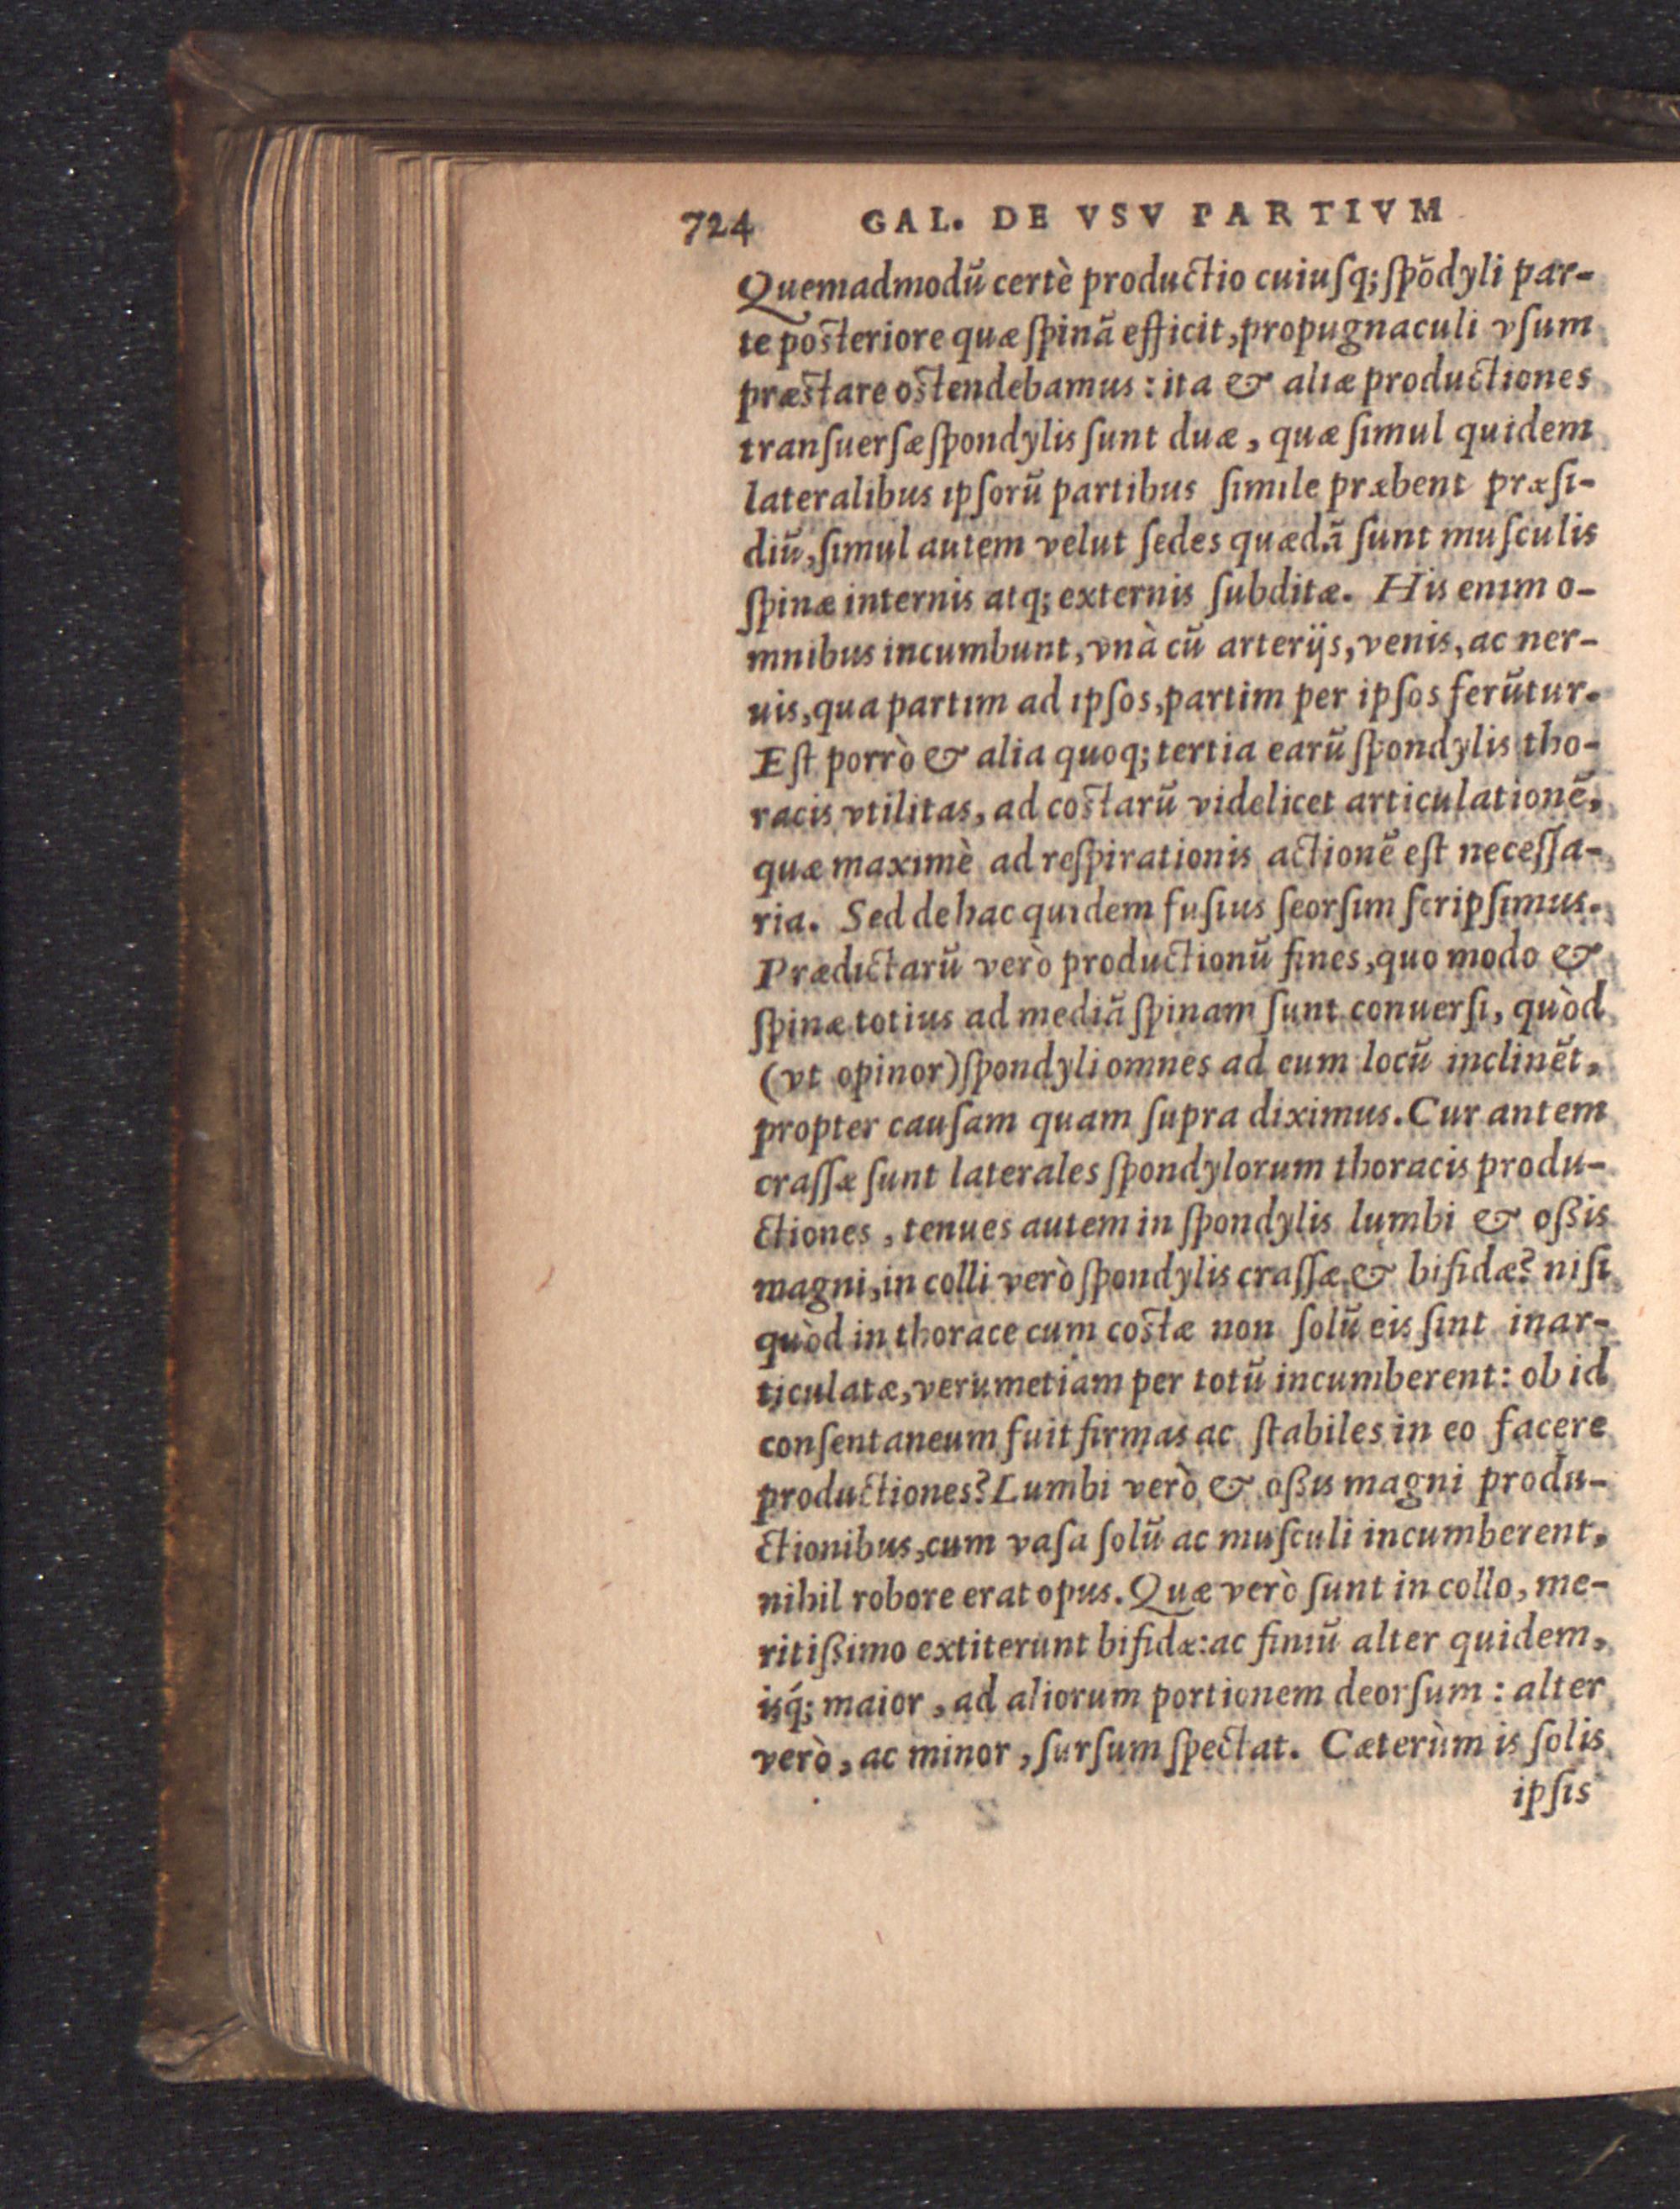 724 GAL. DE VSV PARTIVM
Quemadmodũ certè productio cuiuſq; ſpõdyli par-
te poſteriore quæ ſpinã efficit, propugnaculi vſum
præſtare oſtendebamus: ita & aliæ productiones
tranſuerſæ ſpondylis ſunt duæ, quæ ſimul quidem
lateralibus ipſorũ partibus ſimile præbent præſi-
diũ, ſimul autem velut ſedes quædã ſunt muſculis
ſpinæ internis atq; externis ſubditæ. His enim o-
mnibus incumbunt, vnà cũ arterijs, venis, ac ner-
uis, qua partim ad ipſos, partim per ipſos ferũtur.
Eſt porrò & alia quoq; tertia earũ ſpondylis tho-
racis vtilitas, ad coſtarũ videlicet articulationẽ,
quæ maximè ad reſpirationis actionẽ eſt neceſſa-
ria. Sed de hac quidem fuſius ſeorſim ſcripſimus.
Prædictarũ verò productionũ fines, quo modo &
ſpinæ totius ad mediã ſpinam ſunt conuerſi, quòd
(vt opinor) ſpondyli omnes ad eum locũ inclinẽt,
propter cauſam quam ſupra diximus. Cur antem
craſſæ ſunt laterales ſpondylorum thoracis produ-
ctiones, tenues autem in ſpondylis lumbi & oßis
magni, in colli verò ſpondylis craſſæ & bifidæ? niſi
quòd in thorace cum coſtæ non ſolũ eis ſint inar-
ticulatæ, verumetiam per totũ incumberent: ob id
conſentaneum fuit firmas ac ſtabiles in eo facere
productiones? Lumbi verò & oßis magni produ-
ctionibus, cum vaſa ſolũ ac muſculi incumberent,
nihil robore erat opus. Quæ verò ſunt in collo, me-
ritißimo extiterunt bifidæ: ac finiũ alter quidem,
iſq́; maior, ad aliorum portionem deorſum: alter
verò, ac minor, ſurſum ſpectat. Cæterùm is ſolis
ipſis